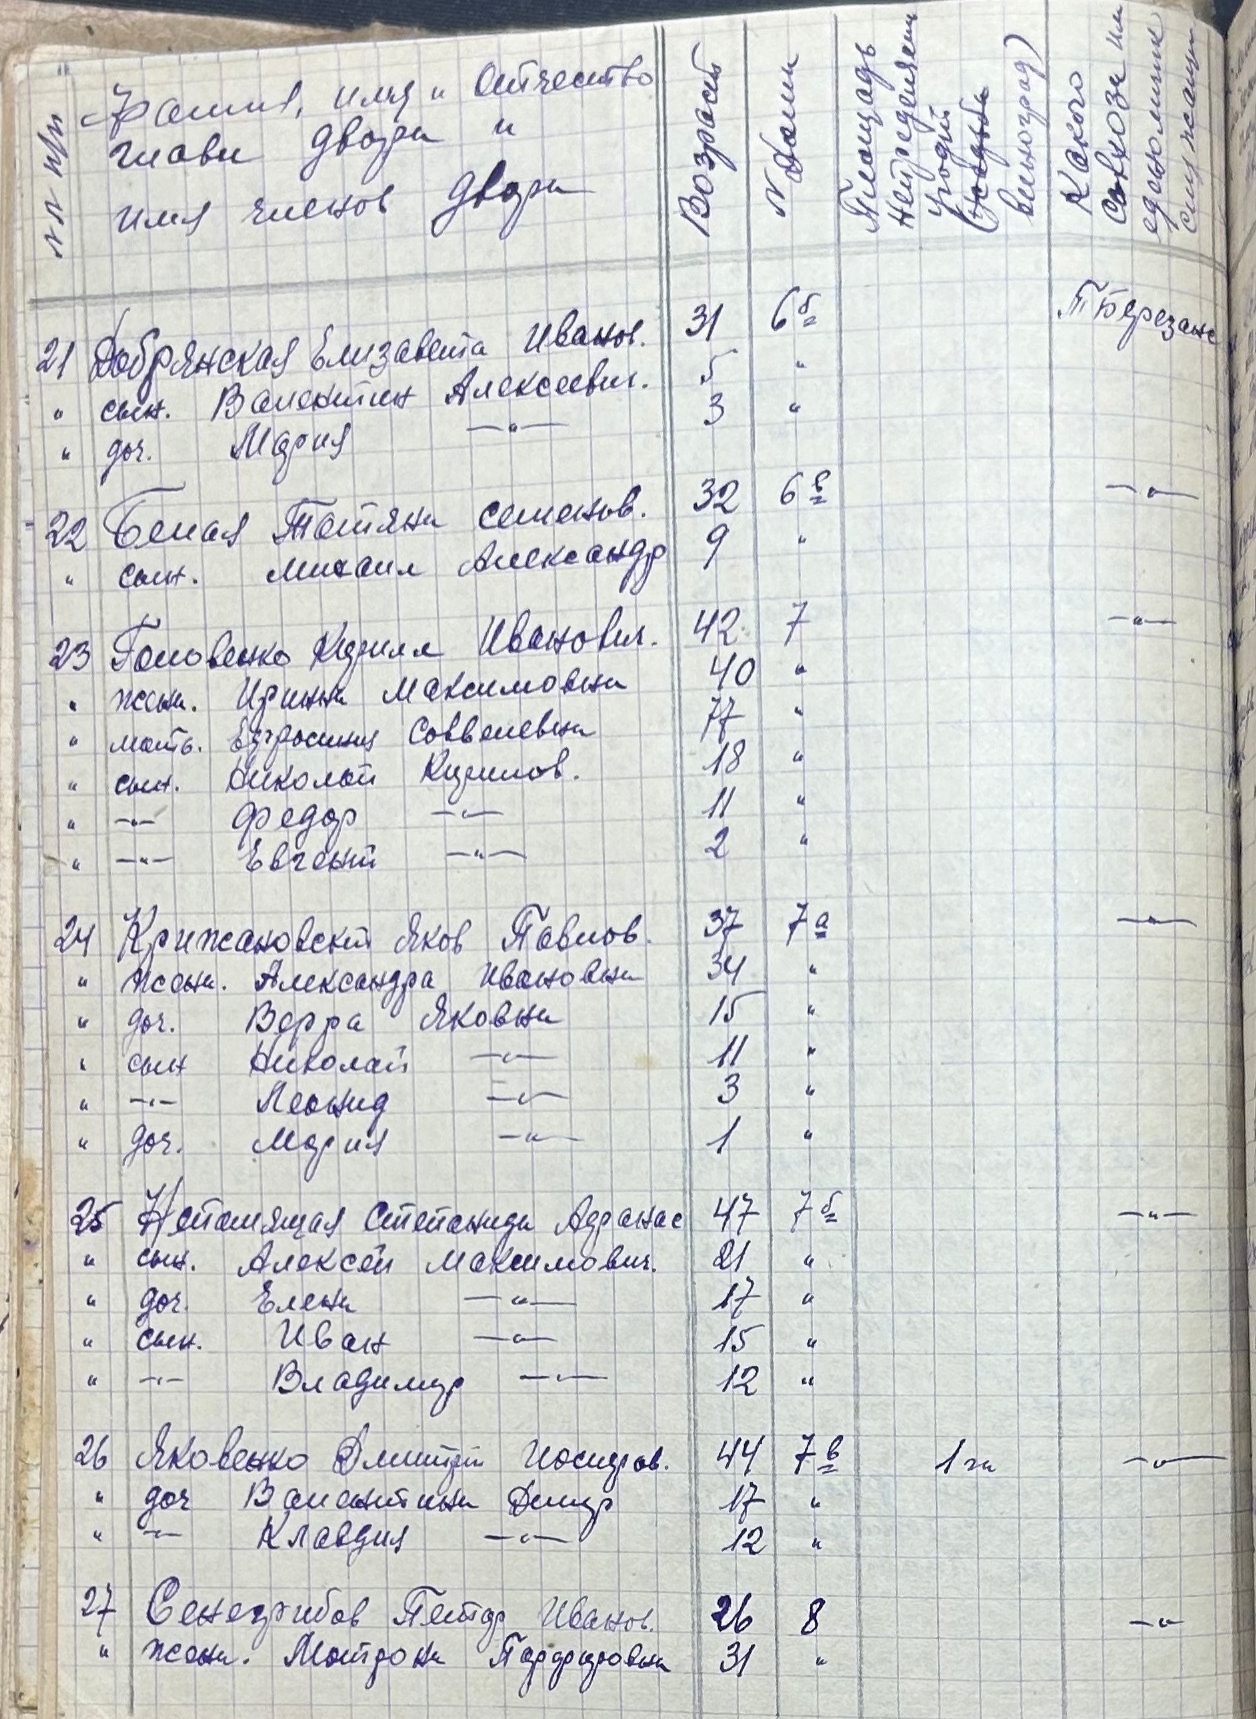 №№ п/п
Фамил, имя и Отчество
главы двора и
имя членов двора
Возраст
№ Дома
Площадь
неправлен
угодий
виноград)
Какого
совхоза или
единоличник
21 Добрянская Елизавета Иванов. 31 6б
" сын. Валентин Алексеевич. 5 "
" доч. Мария —"— 3 "
22 Белая Татьяна Семенов. 32 6в —"—
" сын. Михаил Александр 9 "
23 Головенко Кирилл Иванович. 42 7 —"—
" жена. Ирина Максимовна 40 "
" мать. Ефросиния Соввелевна 77 "
" сын. Николай Кирилов. 18 "
" —"— Федор —"— 11 "
" —"— Евгений —"— 2 "
24 Крижановский Яков Павлов. 37 7а —"—
" жена. Александра Ивановна 34 "
" доч. Верра Яковна 15 "
" сын Николай —"— 11 "
" —"— Леонид —"— 3 "
" доч. Мария —"— 1 "
25 Непомящая Степанида Афанас 47 7б —"—
" сын. Алексей Максимович. 21 "
" доч. Елена —"— 17 "
" сын. Иван —"— 15 "
" —"— Владимир —"— 12 "
26 Яковенко Дмитрий Иосифов. 44 7в 1 га —"—
" доч Валентина Дмитр 17 "
" —"— Клавдия —"— 12 "
27 Сенегрибов Петр Иванов. 26 8 —"—
" жена. Матрона Парфировна 31 "